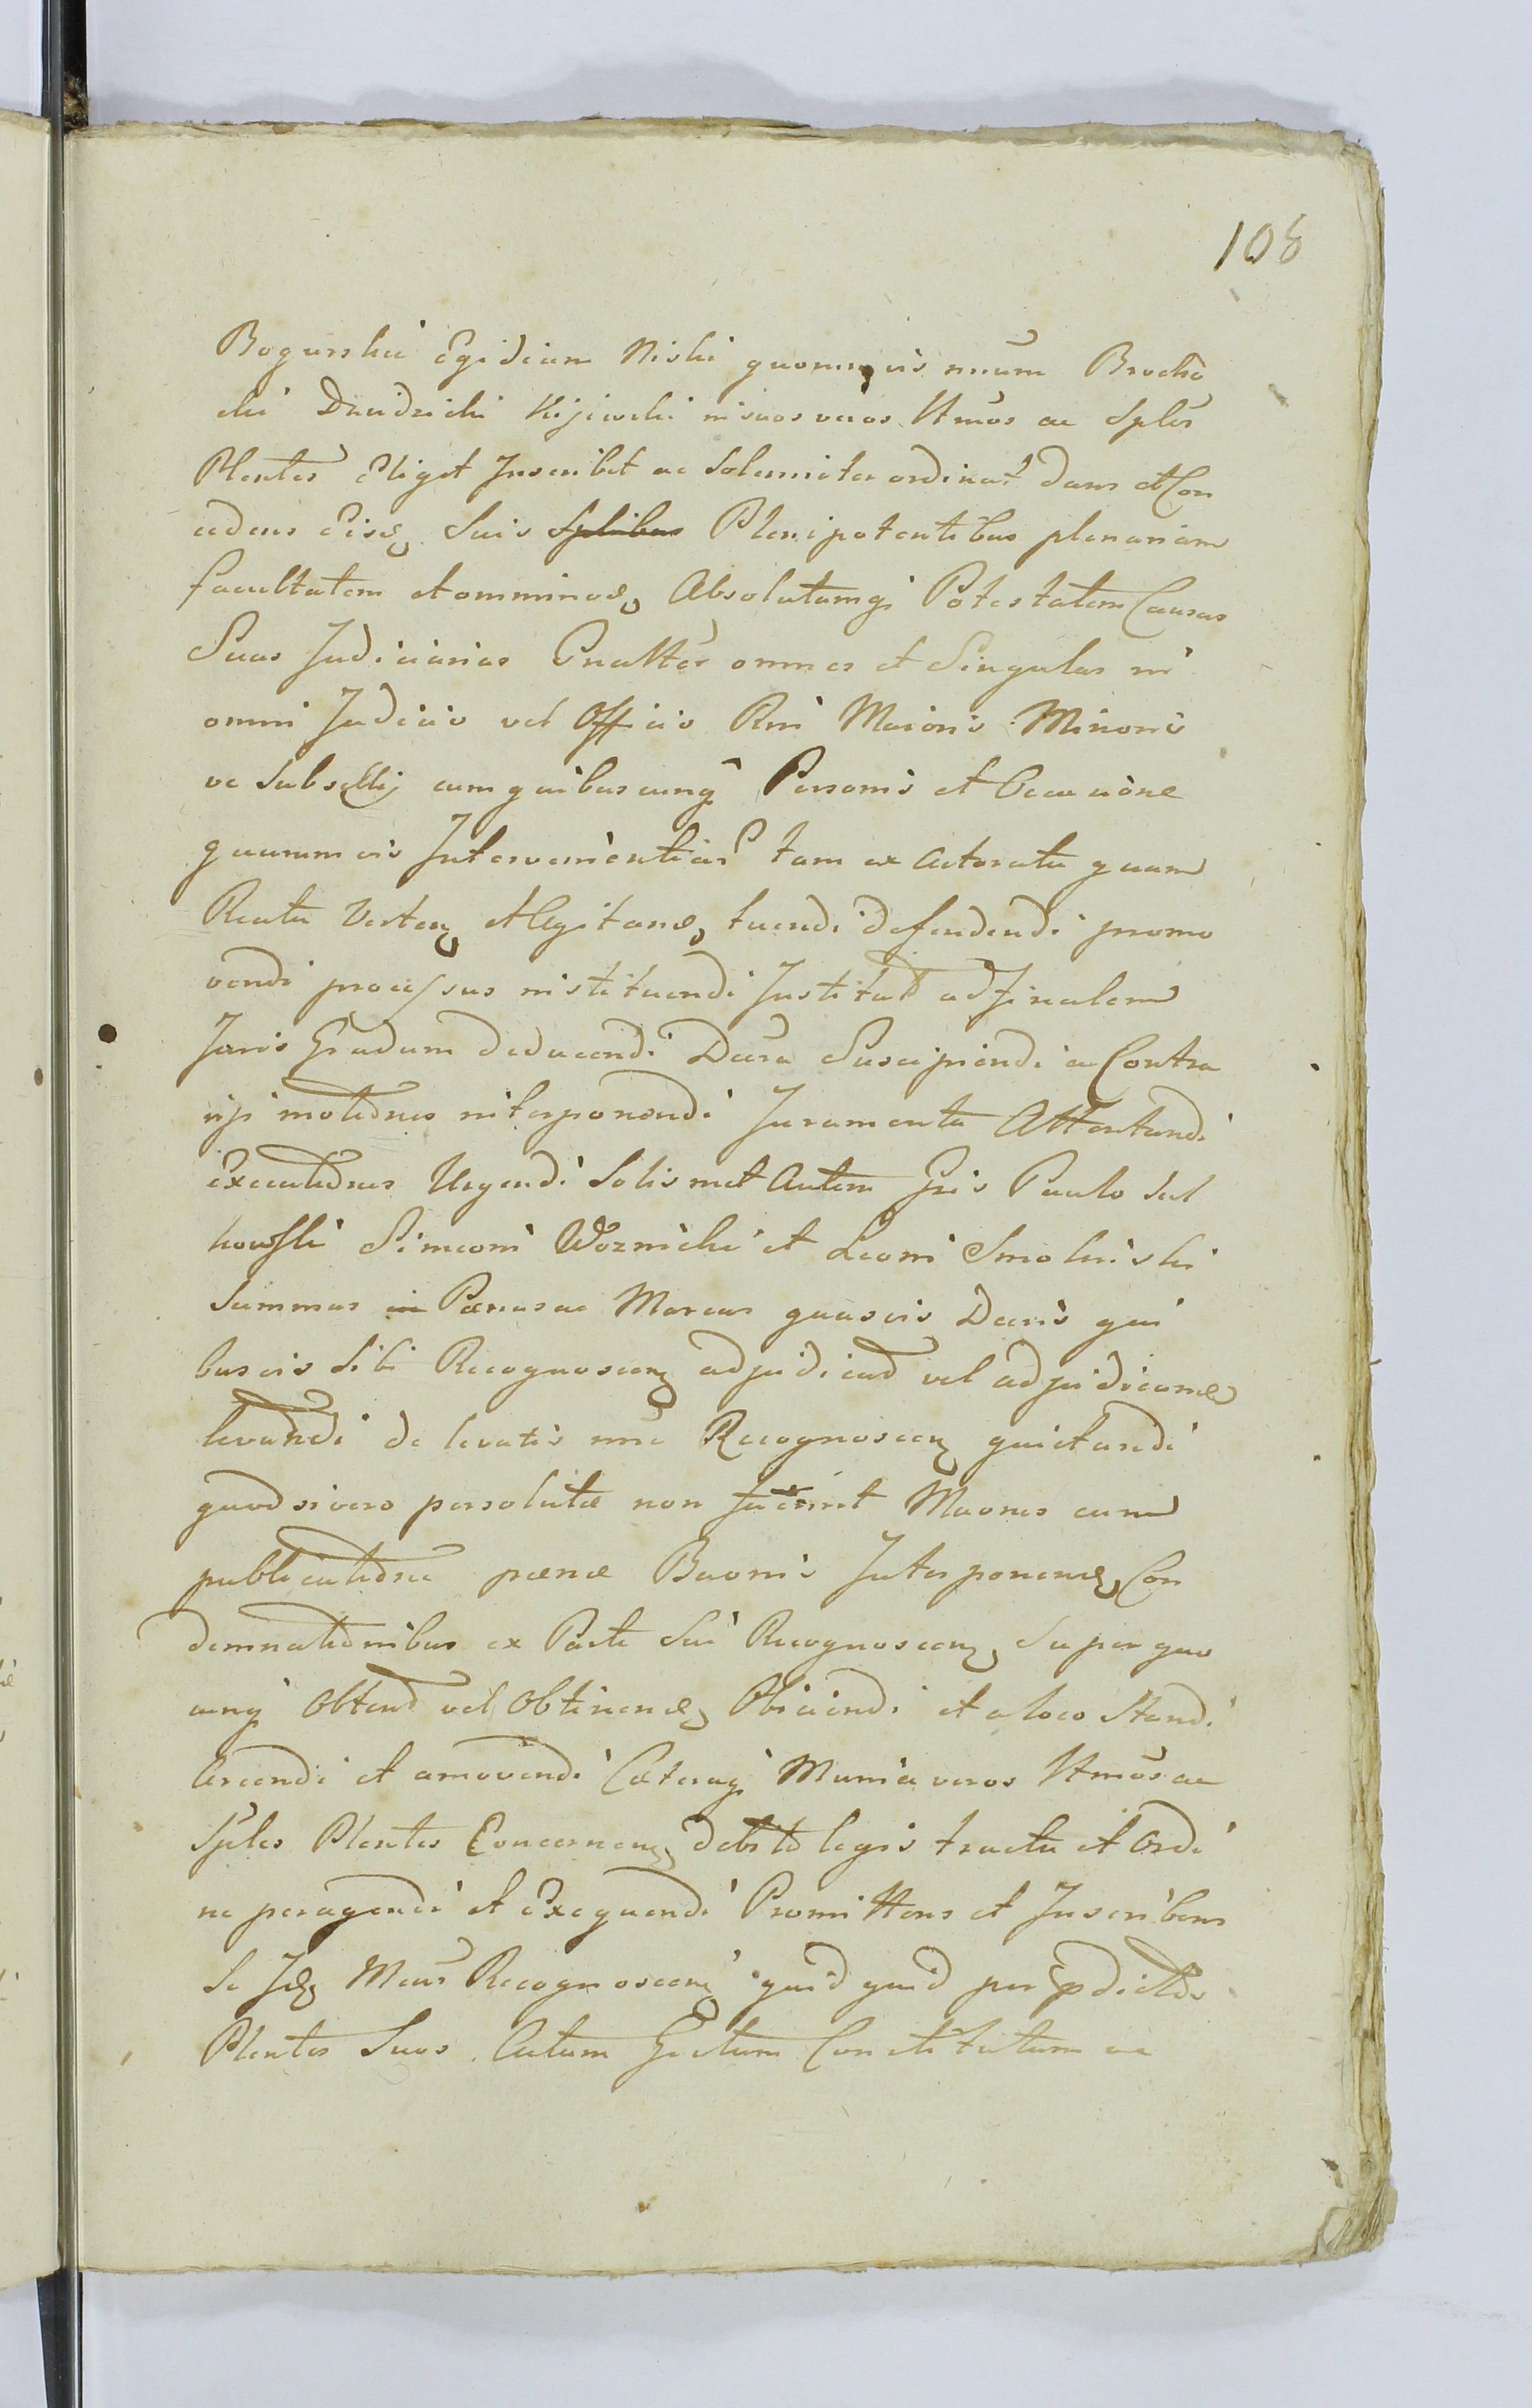 108
Bogurski Egidium Niski quorumvis unum Brocho
cki Dwidzicki Kijewski in suos veros Ltmos ac Sples
Plentes Eligit Inscribit ac Solenniter ordinat dans et Con
cedens Eisd Suis Splibus Plenipotentibus plenariam
facultatem et omnimod Absolutamq Potestatem Causas
Suas Judiciarias Gnaliter omnes et Singulas in
omni Judicio vel Officio Rni Maioris Minoris
ve Subsellij cum quibuscunq Personis et Occasione
quarumvis Intervenientiar tam ex Actoratu quam
Reatu Verten et Agitand, tuendi defendendi promo
vendi processus instituendi Institut ad finalem
Juris Gradum deducendi Decra Suscipiendi a Contra
rijs motiones interponendi Juramenta Attentandi
Executiones Urgendi Solismet Autem Gsis Paulo Sul
kowski Simeoni Woznicki et Leoni Smolinski
Summas Poenas ac Marcas quasvis Decris qui
busvis Sibi Recognoscen adjudicat vel adjudicand
levandi de levatis nne Recognoscen quietandi
quod si vero persolutae non fuerint Maones cum
publicatione poenae Baonis Interponend, Con
demnationibus ex Parte Sui Recognoscen, Super quo
cunq Obtent vel Obtinend, Obiiciendi et a loco Standi
Arcendi et amovendi Caeteraq Munia veros Ltmos ac
Sples Plentes Concernen, debito legis tractu et Ordi
ne peragendi et Exequendi Promittens et Inscribens
Se Id Mcus Recognoscens quid quid per Epdictos
Plentes Suos Actum Gestum Constitutum ac